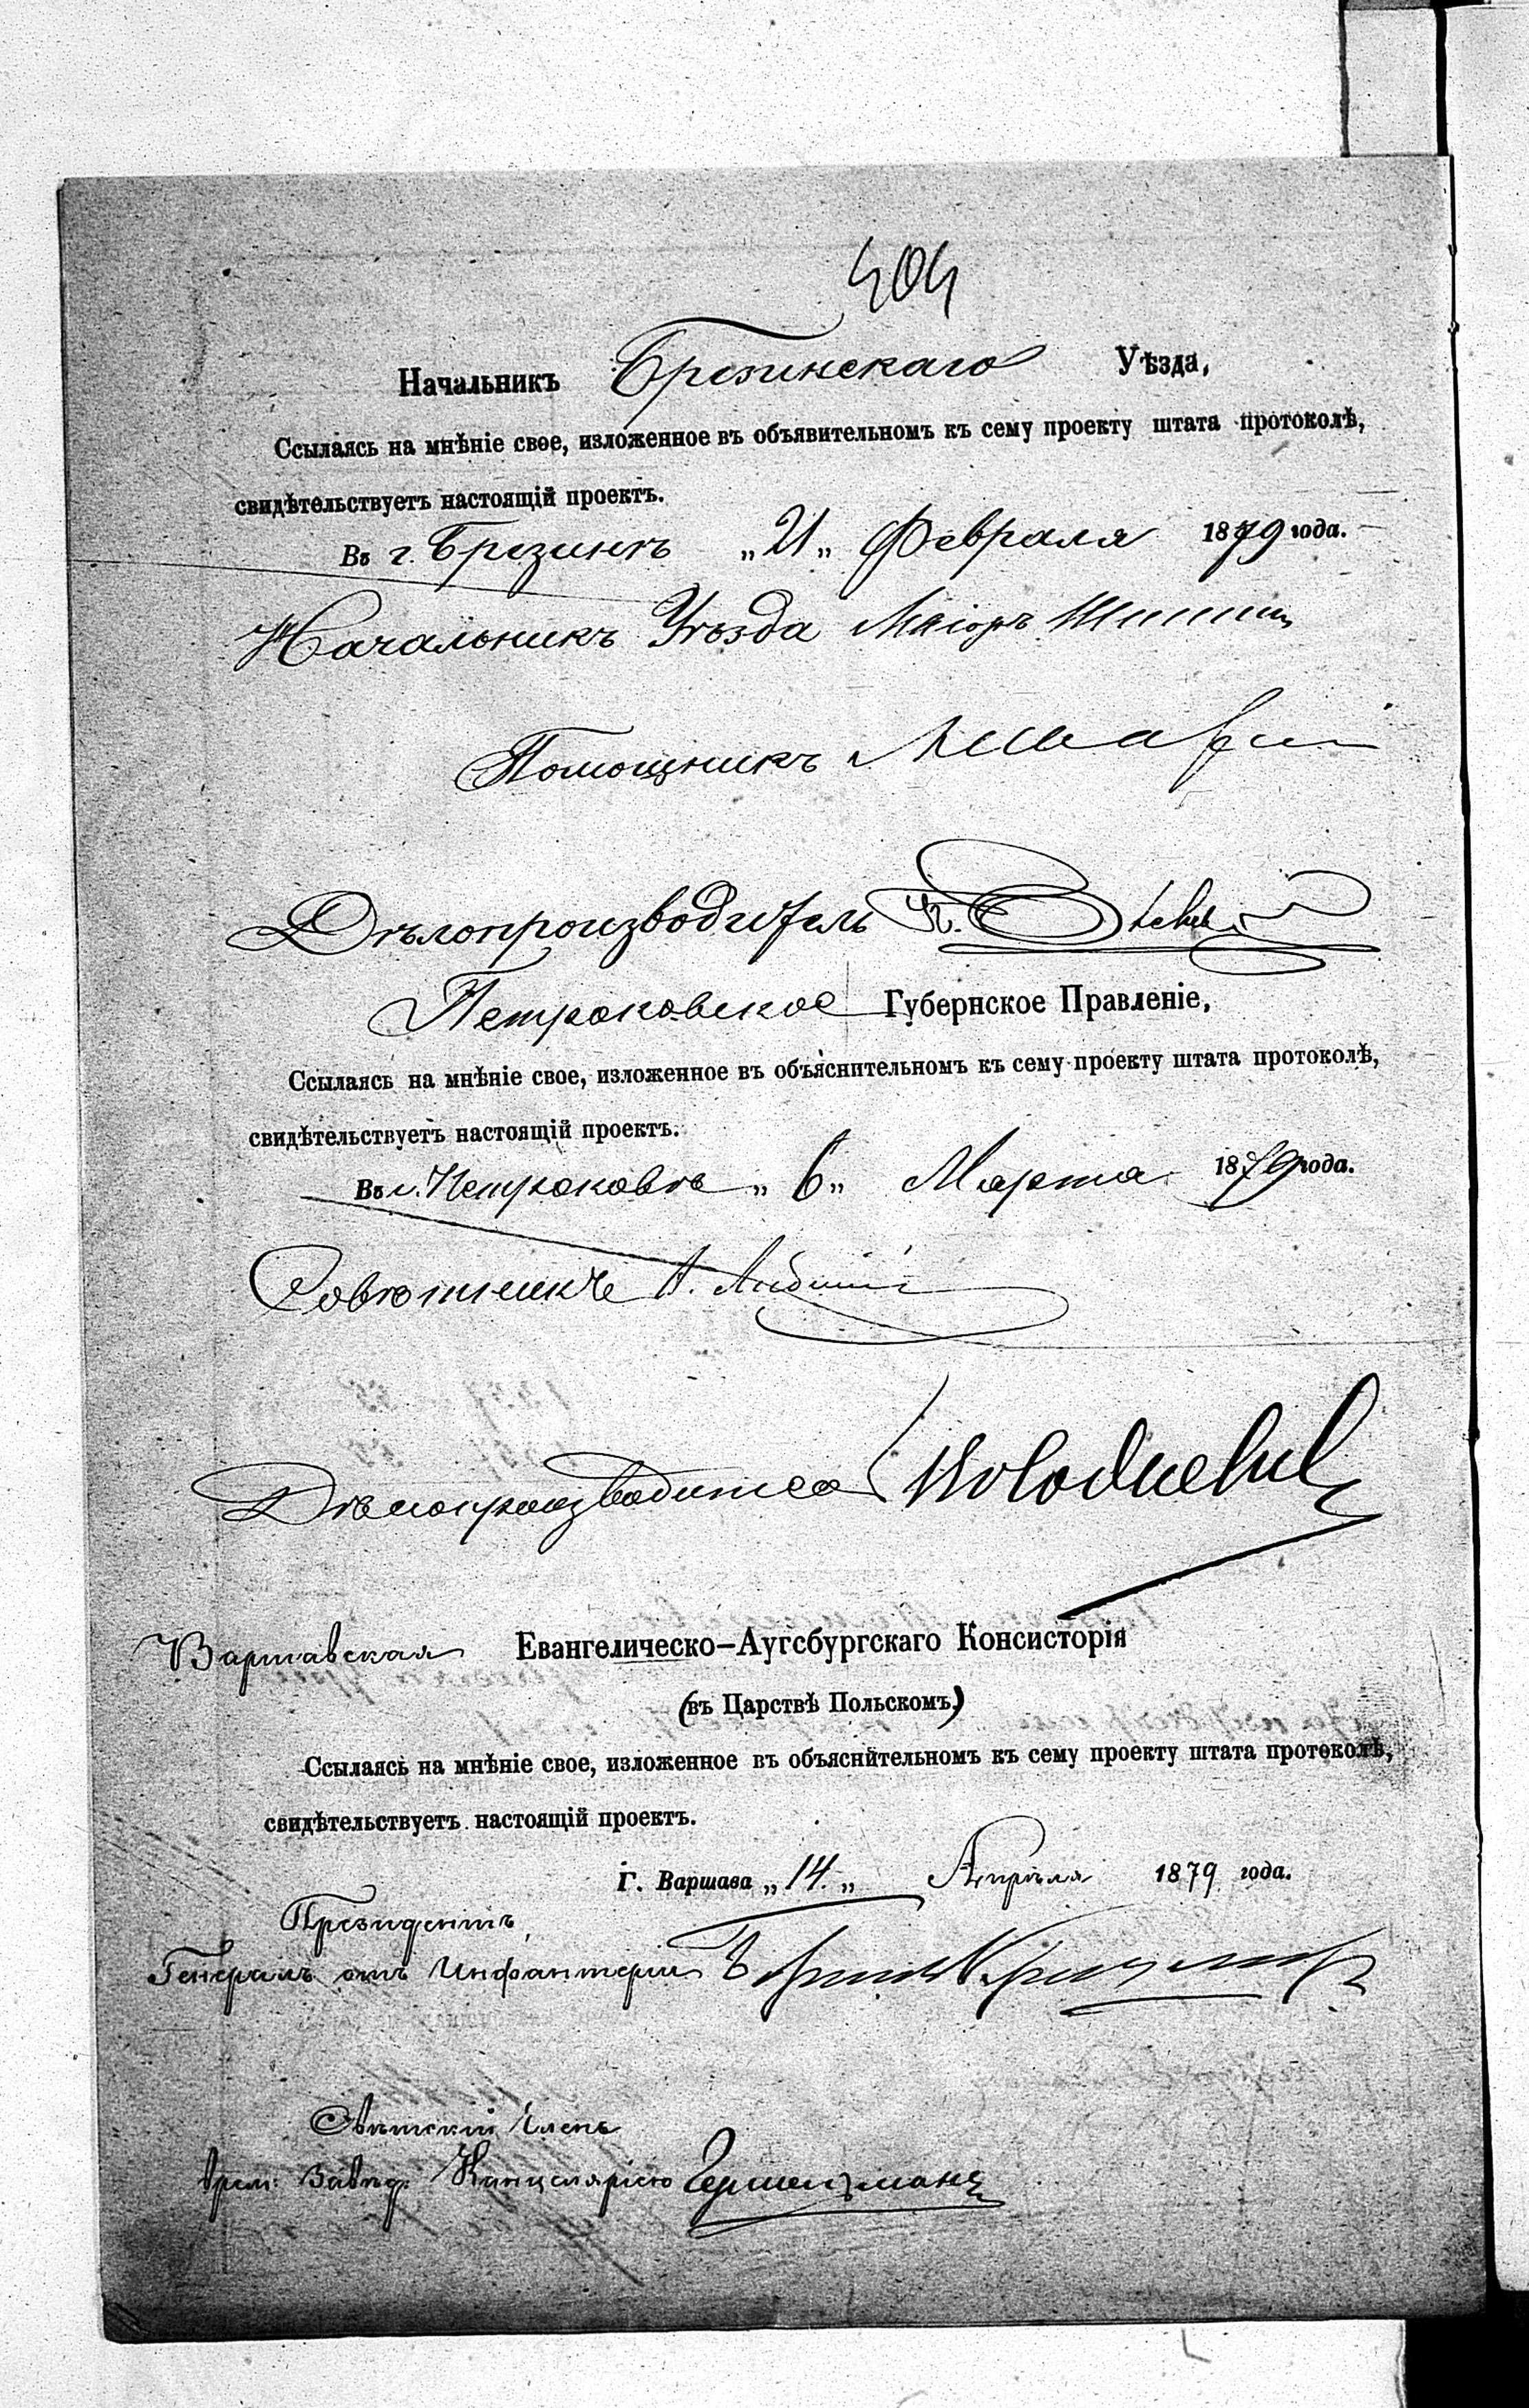 404
Начальникъ Брезинскаго Уѣзда,
Ссылаясь на мнѣніе свое, изложенное въ объявительномъ къ сему проекту штата протоколѣ,
свидѣтельствуетъ настоящій проектъ.
Въ г. Брезинѣ „21„ Февраля 1879 года.
Начальникъ Уѣзда Маіоръ
Помощникъ
Дѣлопроизводитель
Петроковское Губернское Правленіе,
Ссылаясь на мнѣніе свое, изложенное въ объяснительномъ къ сему проекту штата протоколѣ,
свидѣтельствуетъ настоящій проектъ.
Въ г. Петроковѣ „6„ Марта 1879 года.
Совѣтникъ А.
Дѣлопроизводитель
Варшавская Евангелическо-Аугсбургскаго Консисторія
(въ Царствѣ Польскомъ)
Ссылаясь на мнѣніе свое, изложенное въ объяснительномъ къ сему проекту штата протоколѣ,
свидѣтельствуетъ настоящій проектъ.
Г. Варшава „14.„ Апрѣля 1879 года.
Президентъ,
Генералъ отъ Инфантеріи
Свѣтскій Членъ
врем: Завѣд. Канцеляріею